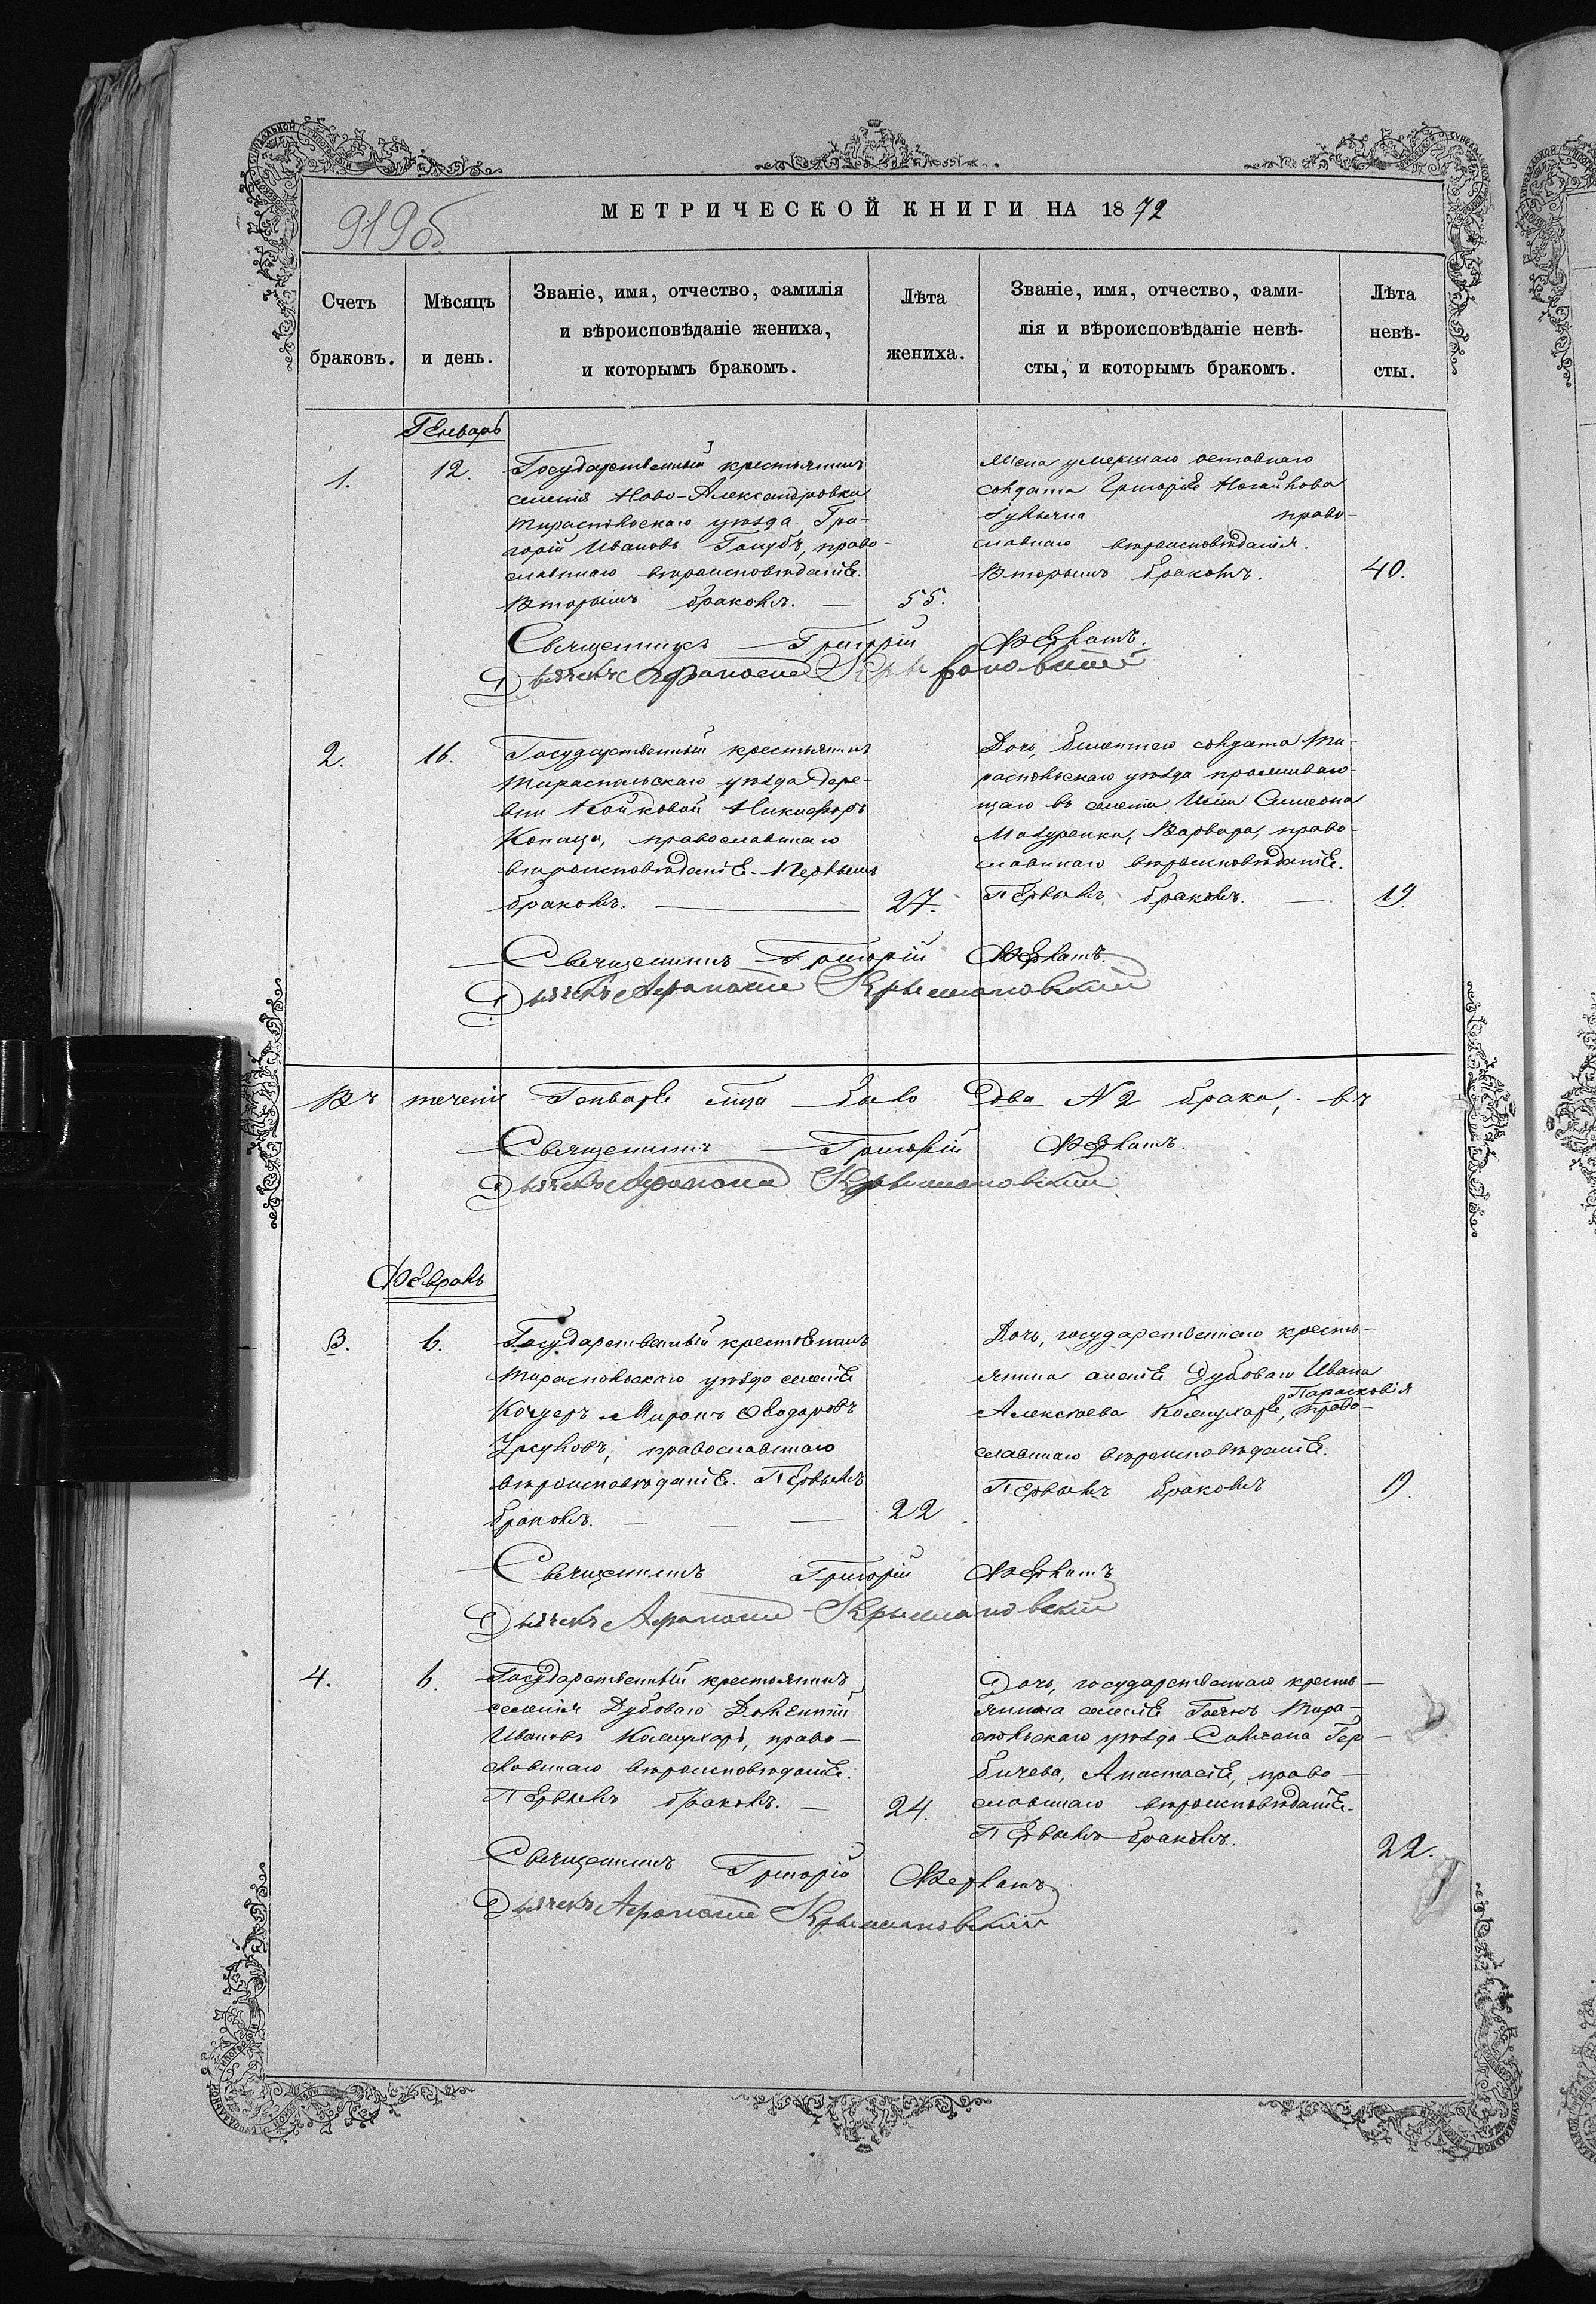 919об
МЕТРИЧЕСКОЙ КНИГИ НА 1872
Счетъ браковъ.
Мѣсяцъ и день.
Званіе, имя, отчество, фамилія
и вѣроисповѣданіе жениха,
и которымъ бракомъ.
Лѣта жениха.
Званіе, имя, отчество, фами-
лія и вѣроисповѣданіе невѣ-
сты, и которымъ бракомъ.
Лѣта невѣ-
сты.
Генварь
1.
12.
Государственный крестьянинъ
селенія Ново-Александровки
Тираспольскаго уѣзда Гри-
горій Ивановъ Голубъ, право-
славнаго вѣроисповѣданія.
Вторымъ бракомъ. —
55.
Жена умершаго отставнаго
солдата Григорія
право-
славнаго вѣроисповѣданія.
Вторымъ бракомъ.
40.
Священникъ Григорій
Дьячекъ Афанасій
2.
16.
Государственный крестьянинъ
Тираспольскаго уѣзда дере-
вни Койковой Никифоръ
православнаго
вѣроисповѣданія. Первымъ
бракомъ. —
27.
Дочь, билетнаго солдата Ти-
распольскаго уѣзда проживаю-
щаго въ селеніи Симеона
Мазуренка, Варвара, право-
славнаго вѣроисповѣданія.
Первымъ бракомъ. —
19.
Священникъ Григорій
Дьячекъ Афанасій Крыжановскій
Въ теченіи Генваря мца было два № 2 брака, въ
Священникъ Григорій
Дьячекъ Афанасій Крыжановскій
Февраль
3.
6.
Государственный крестьянинъ
Тираспольскаго уѣзда селенія
Миронъ Ѳеодоровъ
Урсуловъ, православнаго
вѣроисповѣданія. Первымъ
бракомъ. — — —
22
Дочь, государственнаго кресть-
янина селенія Дубоваго Ивана
Параскевія
Алексѣева Комухаря, право-
славнаго вѣроисповѣданія.
Первымъ бракомъ
19.
Священникъ Григорій
Дьячекъ Афанасій Крыжановскій
4.
6.
Государственный крестьянинъ
селенія Дубоваго
Ивановъ Комухарь, право-
славнаго вѣроисповѣданія.
Первымъ бракомъ. —
24.
Дочь, государственнаго кресть-
янина селенія Гоянъ Тира-
спольскаго уѣзда Гер-
бичева, Анастасія, право-
славнаго вѣроисповѣданія.
Первымъ бракомъ.
22.
Священникъ Григорій
Дьячекъ Афанасій Крыжановскій